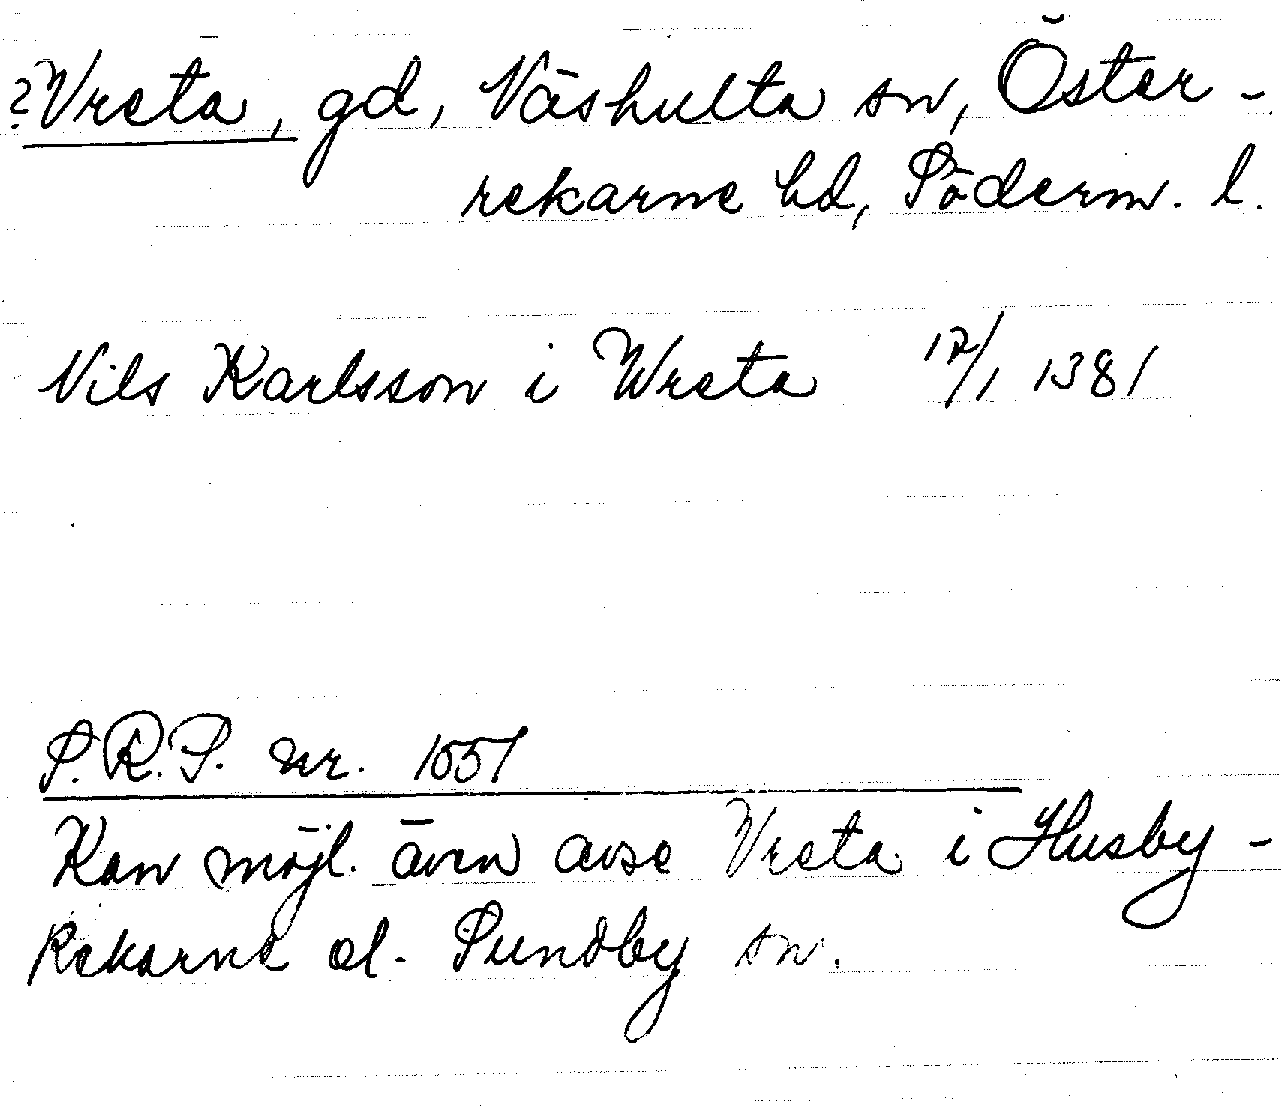 ?Vreta, gd, Näshulta sn, Öster-
rekarne hd, Söderm. l.
Nils Karlsson i Wreta 12/1 1381
S.R.P. nr. 1557
Kan möjl. även avse Vreta i Husby-
Rekarne el. Sundby sn.